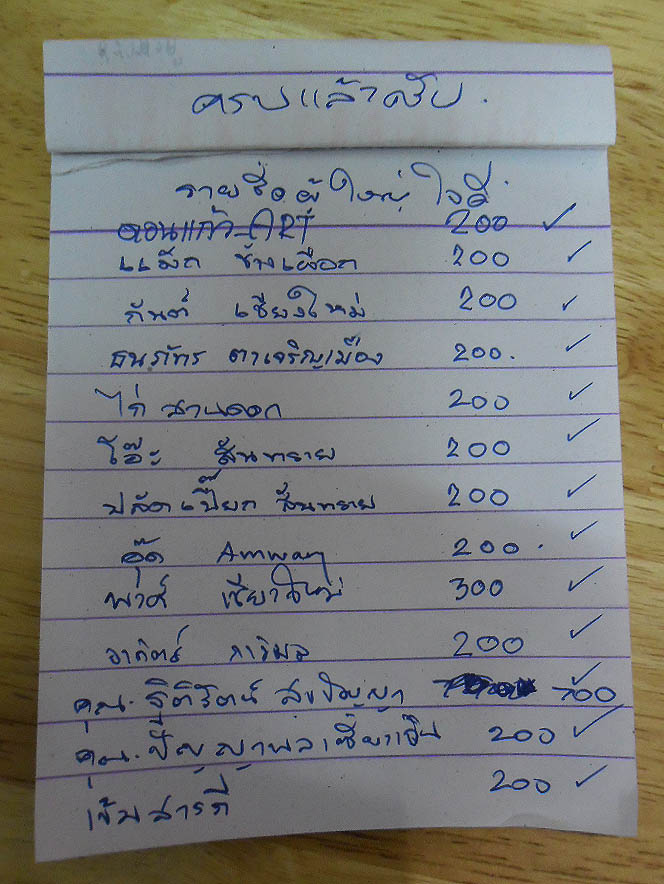 ครบแล้วครับ.
รายชื่อผู้ใหญ่ใจดี
ดอนแก้ว_ART 200 ✓
แม็ก ช้างเผือก 200 ✓
กันต์ เชียงใหม่ 200 ✓
ธนภัทร ตาเจริญเมือง 200. ✓
ไก่ สวนดอก 200 ✓
โอ๊ะ สันทราย 200 ✓
ปลัดเปี๊ยก สันทราย 200 ✓
อู๊ด Amway 200. ✓
พาศ์ เชียงใหม่ 300 ✓
อาทิตย์ 200 ✓
คุณ. ฐิติรัตน์ สุขปัญญา 700 ✓
คุณ. ปัญญาพล 200 ✓
เข้มสารภี 200 ✓